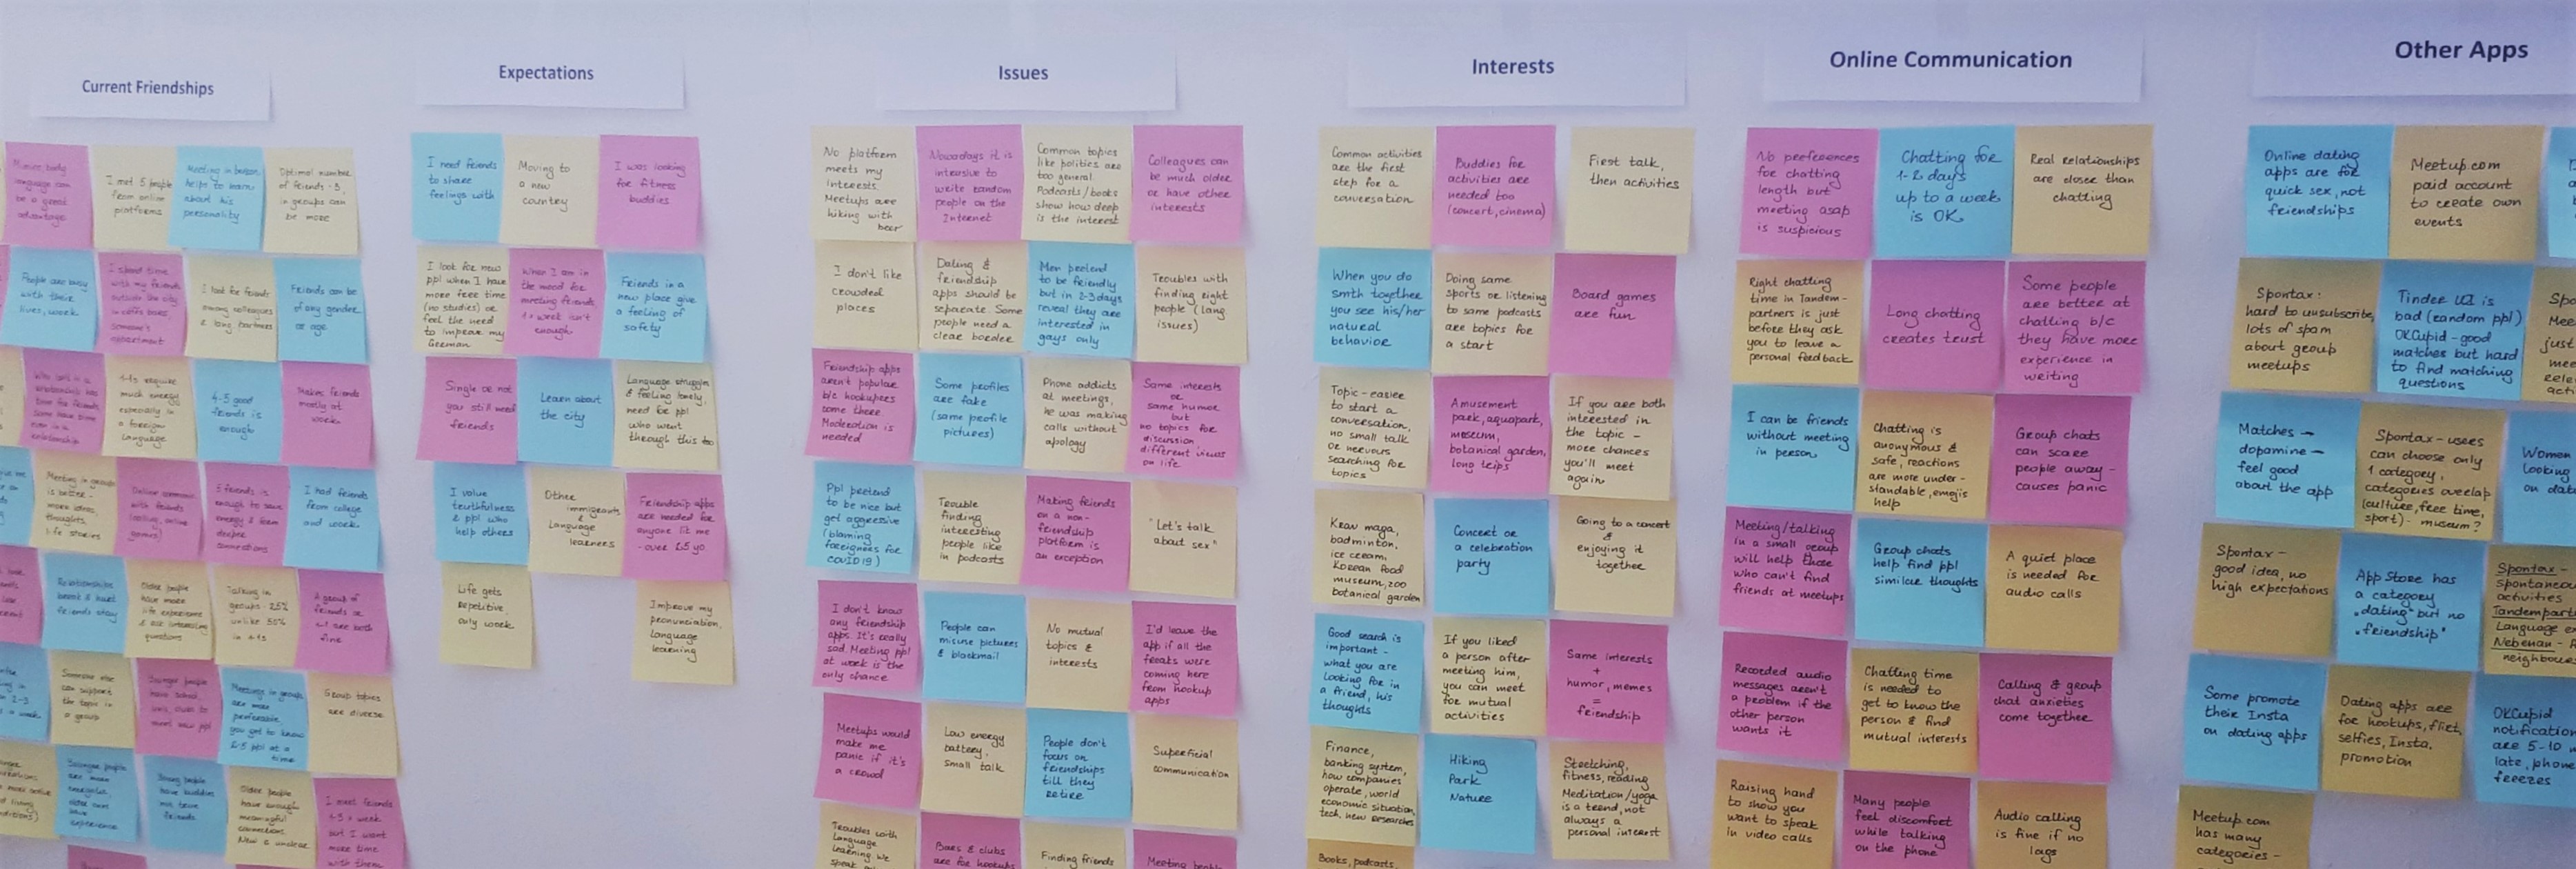 Current Friendships
I met 5 people
from online
platforms
Meeting in person
helps to learn
about his
personality
Optimal number
of friends - 3,
in groups can
be more
People are busy
with their
lives, work
I spend time
with my friends
outside the city
I look for friends
among colleagues
Friends can be
of any gender
or age
4-5 good
friends is
enough
Makes friends
mostly at
work
Meeting in groups
is better -
more ideas,
thoughts,
life stories
5 friends is
enough to save
energy & form
deeper
connections
I had friends
from college
and work
Older people
have more
life experience
& ask interesting
questions
Talking in
groups - 25%
unlike 50%
in 1-1s
A group of
friends or
1-1 are both
fine
Someone else
can support
the topic in
a group
Meetings in groups
are more
preferable,
you get to know
Group topics
are diverse
Expectations
I need friends
to share
feelings with
Moving to
a new
country
I was looking
for fitness
buddies
I look for new
ppl when I have
more free time
(no studies) or
feel the need
to improve my
German
When I am in
the mood for
meeting friends
1x week isn't
enough
Friends in a
new place give
a feeling of
safety
Single or not
you still need
friends
Learn about
the city
Language struggles
& feeling lonely,
need for ppl
who went
through this too
I value
truthfulness
& ppl who
help others
Other
immigrants
&
language
learners
Friendship apps
are needed for
anyone lit me
- over 25 yo
Life gets
repetitive,
only work
Improve my
pronunciation,
language
learning
Issues
No platform
meets my
interests.
Meetups are
hiking with
beer
Nowadays it is
intrusive to
write random
people on the
Internet
Common topics
like politics are
too general.
Podcasts/books
show how deep
is the interest
Colleagues can
be much older
or have other
interests
I don't like
crowded
places
Dating &
friendship
apps should be
separate. Some
people need a
clear border
Men pretend
to be friendly
but in 2-3 days
reveal they are
interested in
gays only
Troubles with
finding right
people (lang.
issues)
Friendship apps
aren't popular
b/c hookupers
come there.
Moderation is
needed
Some profiles
are fake
(same profile
pictures)
Phone addicts
at meetings,
he was making
calls without
apology
Same interests
or
same humor
but
no topics for
discussion
different views
on life
Ppl pretend
to be nice but
get aggressive
(blaming
foreigners for
COVID19)
Trouble
finding
interesting
people like
in podcasts
Making friends
on a non-
friendship
platform is
an exception
"Let's talk
about sex"
I don't know
any friendship
apps. It's really
sad. Meeting ppl
at work is the
only chance
People can
misuse pictures
& blackmail
No mutual
topics &
interests
I'd leave the
app if all the
freaks were
coming here
from hookup
apps
Meetups would
make me
panic if it's
a crowd
Low energy
battery,
small talk
People don't
focus on
friendships
till they
retire
Superficial
communication
Troubles with
language
learning, we
speak
Bars & clubs
are for hookups
Finding friends
Meeting people
Interests
Common activities
are the first
step for a
conversation
Buddies for
activities are
needed too
(concert, cinema)
First talk,
then activities
When you do
smth together
you see his/her
natural
behavior
Doing same
sports or listening
to same podcasts
are topics for
a start
Board games
are fun
Topic - easier
to start a
conversation,
no small talk
or nervous
searching for
topics
Amusement
park, aquapark,
museum,
botanical garden,
long trips
If you are both
interested in
the topic -
more chances
you'll meet
again
Krav maga,
badminton,
ice cream,
Korean food
museum, zoo
botanical garden
Concert or
a celebration
party
Going to a concert
&
enjoying it
together
Good search is
important -
what you are
looking for in
a friend, his
thoughts
If you liked
a person after
meeting him,
you can meet
for mutual
activities
Same interests
+
humor, memes
=
friendship
Finance,
banking system,
how companies
operate, world
economic situation,
tech, new researches
Hiking
Park
Nature
Stretching,
fitness, reading
Meditation/yoga
is a trend, not
always a
personal interest
Books, podcasts,
Online Communication
No preferences
for chatting
length but
meeting asap
is suspicious
Chatting for
1-2 days
up to a week
is OK
Real relationships
are closer than
chatting
Right chatting
time in Tandem -
partners is just
before they ask
you to leave a
personal feedback
Long chatting
creates trust
Some people
are better at
chatting b/c
they have more
experience in
writing
I can be friends
without meeting
in person
Chatting is
anonymous &
safe, reactions
are more under-
standable, emojis
help
Group chats
can scare
people away -
causes panic
Meeting/talking
in a small group
will help those
who can't find
friends at meetups
Group chats
help find ppl
similar thoughts
A quiet place
is needed for
audio calls
Recorded audio
messages aren't
a problem if the
other person
wants it
Chatting time
is needed to
get to know the
person & find
mutual interests
Calling & group
chat anxieties
come together
Raising hand
to show you
want to speak
in video calls
Many people
feel discomfort
while talking
on the phone
Audio calling
is fine if no
lags
Other Apps
Online dating
apps are for
quick sex, not
friendships
Meetup.com
paid account
to create own
events
Spontax:
hard to unsubscribe,
lots of spam
about group
meetups
Tinder UI is
bad (random ppl)
OKCupid - good
matches but hard
to find matching
questions
Matches →
dopamine →
feel good
about the app
Spontax - users
can choose only
1 category,
categories overlap
(culture, free time,
sport) - museum?
Women
looking
on dat
Spontax -
good idea, no
high expectations
App Store has
a category
"dating" but no
"friendship"
Spontax -
spontaneou
activities
Tandempart
Language ex
Nebenan -
neighbour
Some promote
their Insta
on dating apps
Dating apps are
for hookups, flirt,
selfies, Insta.
promotion
OKCupid
notification
are 5-10 m
late, phone
freezes
Meetup.com
has many
categories -